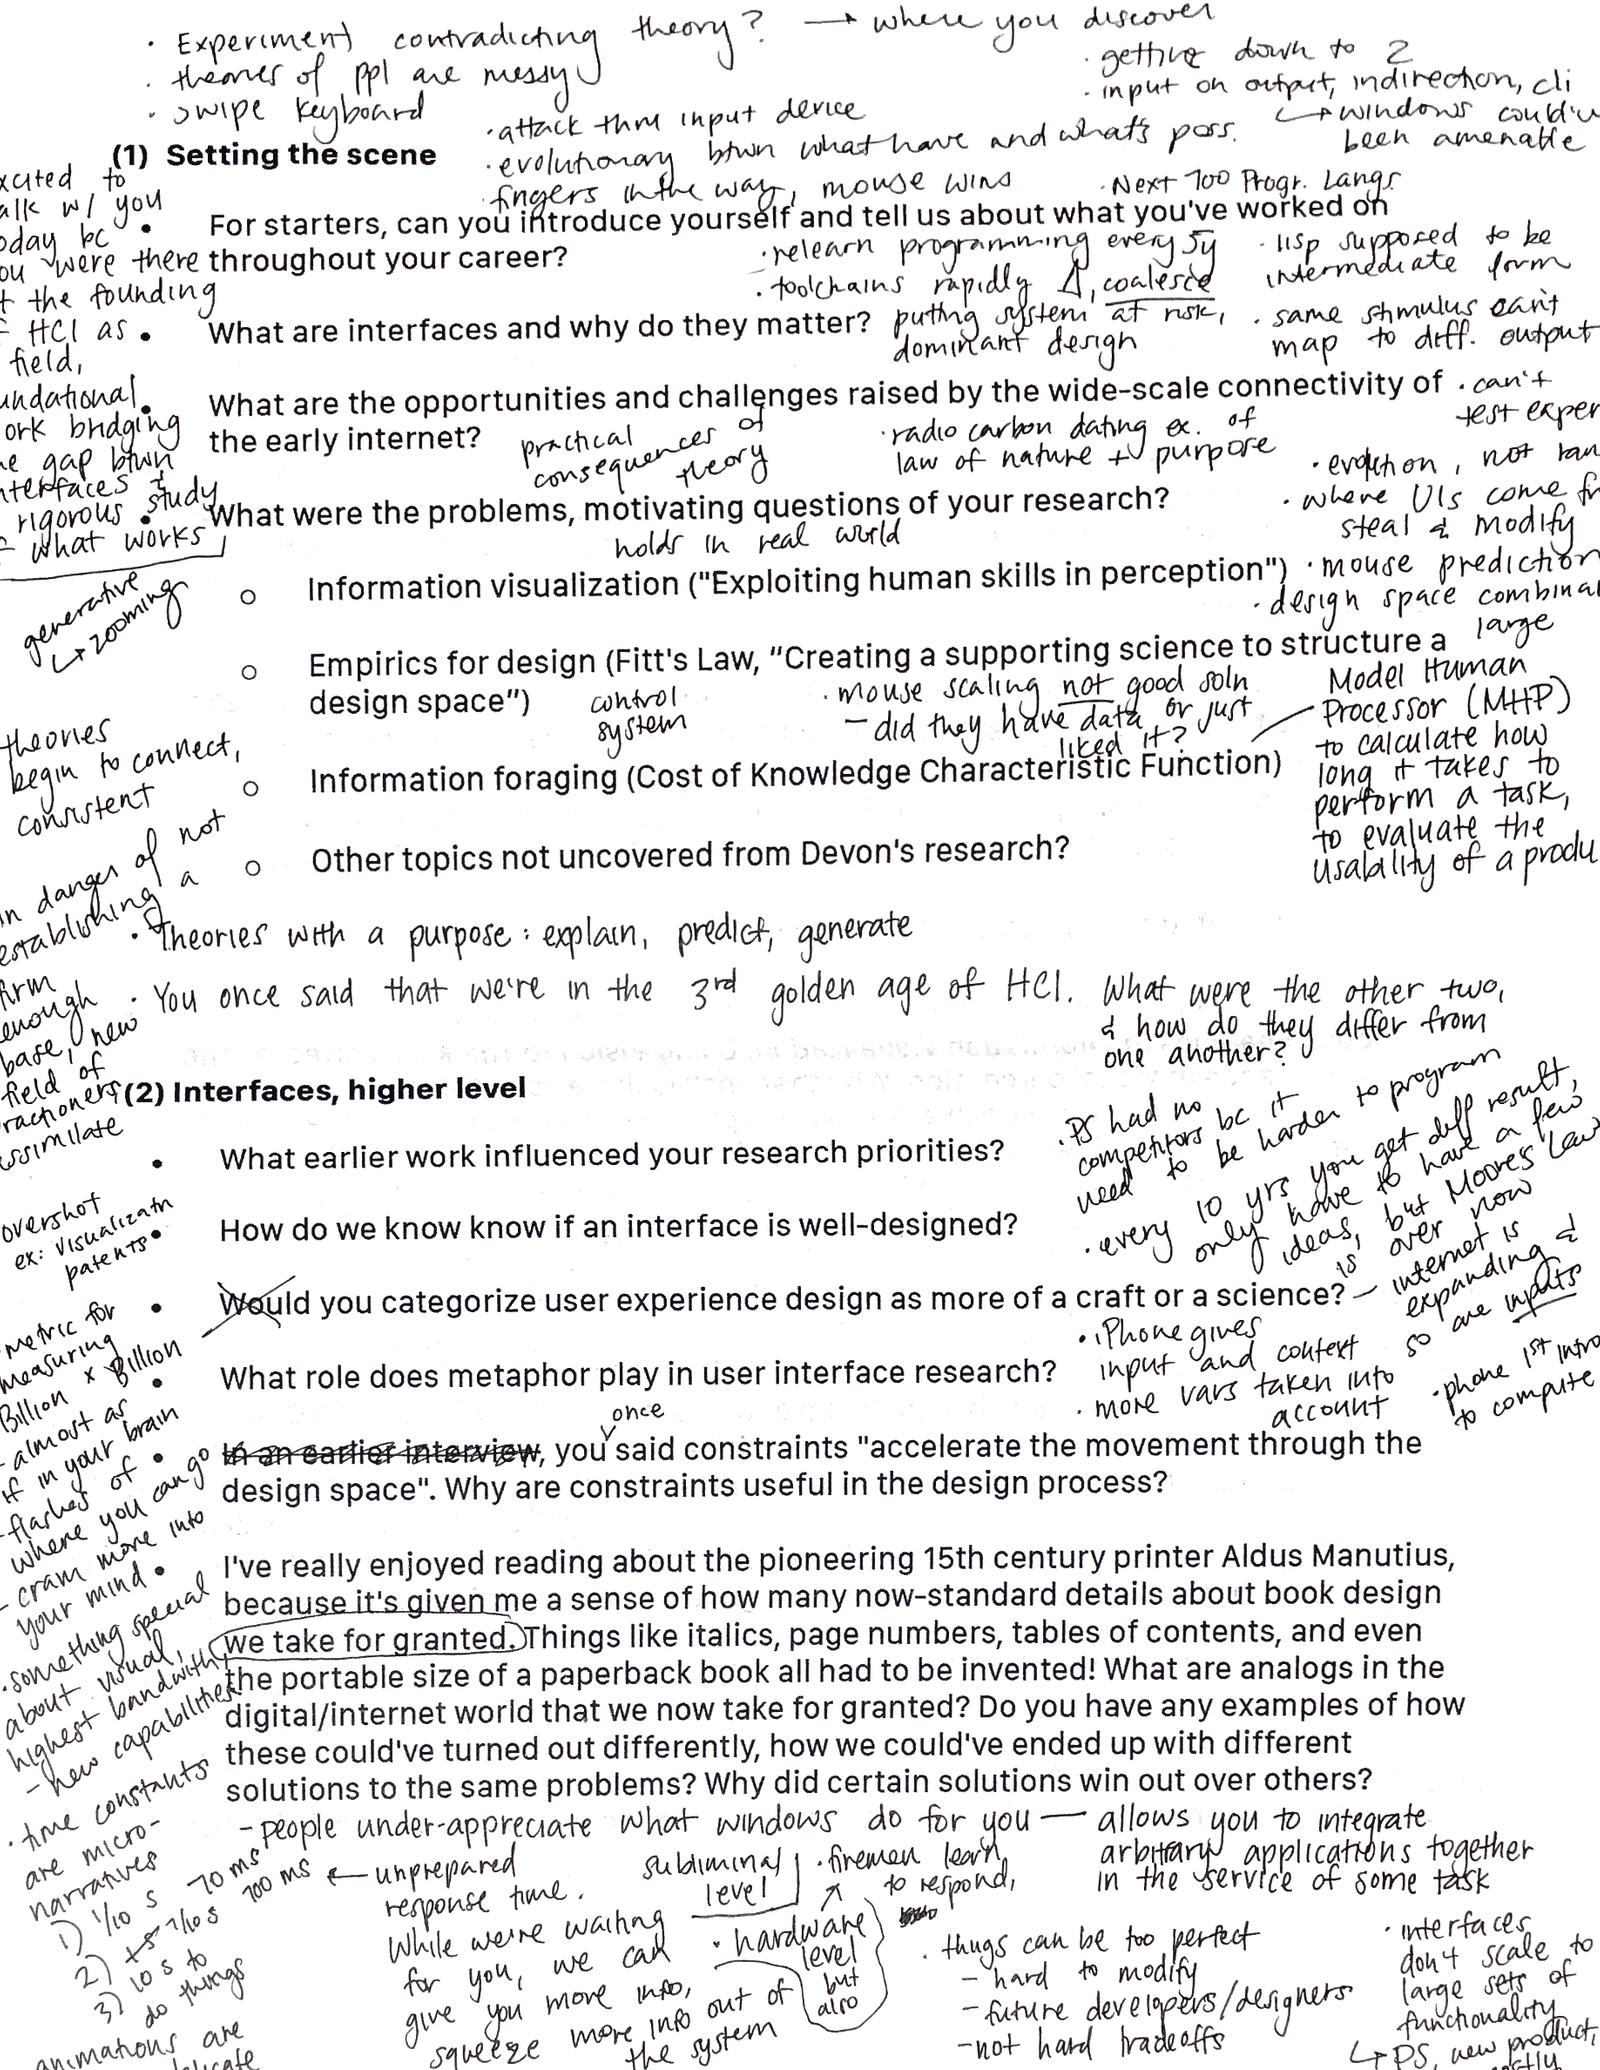 · Experiment contradicting theory? → where you discover
· theories of ppl are messy
· swipe keyboard
· getting down to 2
· input on output, indirection, cli
↳ windows could'v
been amenable
· attack thru input device
· evolutionary btwn what have and what's poss.
· fingers in the way, mouse wins
(1) Setting the scene
xcited to
alk w/ you
oday bc
ou were there
t the founding
f HCI as
field,
undational
ork bridging
he gap btwn
nterfaces &
rigorous study
f what works
• For starters, can you introduce yourself and tell us about what you've worked on
throughout your career?
· Next 700 Progr. Langs
· relearn programming every 5y
· toolchains rapidly Δ, coalesce
putting system at risk,
dominant design
· lisp supposed to be
intermediate form
· same stimulus can't
map to diff. output
• What are interfaces and why do they matter?
• What are the opportunities and challenges raised by the wide-scale connectivity of
the early internet?
· can't
test exper
practical
consequences of
theory
· radio carbon dating ex. of
law of nature + purpose
· evolution, not ran
· where UIs come fr
steal & modify
• What were the problems, motivating questions of your research?
holds in real world
generative
↳ zooming
○ Information visualization ("Exploiting human skills in perception")
· mouse prediction
· design space combinat
large
○ Empirics for design (Fitt's Law, "Creating a supporting science to structure a
design space")
control
system
· mouse scaling not good soln
– did they have data, or just
liked it?
Model Human
Processor (MHP)
to calculate how
long it takes to
perform a task,
to evaluate the
usability of a produ
theories
begin to connect,
consistent
○ Information foraging (Cost of Knowledge Characteristic Function)
○ Other topics not uncovered from Devon's research?
in danger of not
establishing a
firm
enough
base, new
field of
ractioners
assimilate
· Theories with a purpose: explain, predict, generate
· You once said that we're in the 3rd golden age of HCI. What were the other two,
& how do they differ from
one another?
(2) Interfaces, higher level
• What earlier work influenced your research priorities?
· PS had no
competitors bc it
need to be harder to program
· every 10 yrs you get diff result,
only have to have a few
ideas, but Moore's Law
is over now
– internet is
expanding &
so are inputs
overshot
ex: visualizatn
patents
• How do we know know if an interface is well-designed?
• Would you categorize user experience design as more of a craft or a science?
· iPhone gives
input and context
· more vars taken into
account
· phone 1st intro
to compute
metric for
measuring
Billion x Billion
– almost as
if in your brain
– flashes of
where you can go
– cram more into
your mind
• What role does metaphor play in user interface research?
• In an earlier interview, you once said constraints "accelerate the movement through the
design space". Why are constraints useful in the design process?
• I've really enjoyed reading about the pioneering 15th century printer Aldus Manutius,
because it's given me a sense of how many now-standard details about book design
we take for granted. Things like italics, page numbers, tables of contents, and even
the portable size of a paperback book all had to be invented! What are analogs in the
digital/internet world that we now take for granted? Do you have any examples of how
these could've turned out differently, how we could've ended up with different
solutions to the same problems? Why did certain solutions win out over others?
· something special
about visual,
highest bandwith
– new capabilities
· time constants
are micro-
narratives
1) 1/10 s 70 ms
2) 1/10 s 100 ms ← unprepared
response time.
3) 10 s to
do things
animations are
– people under-appreciate what windows do for you — allows you to integrate
arbitrary applications together
in the service of some task
While we're waiting
for you, we can
give you more info,
squeeze more info out of
the system
subliminal
level
· hardware
level
but
also
· firemen learn
to respond,
· things can be too perfect
– hard to modify
– future developers/designers
– not hard tradeoffs
· interfaces
don't scale to
large sets of
functionality
↳ PS, new product,